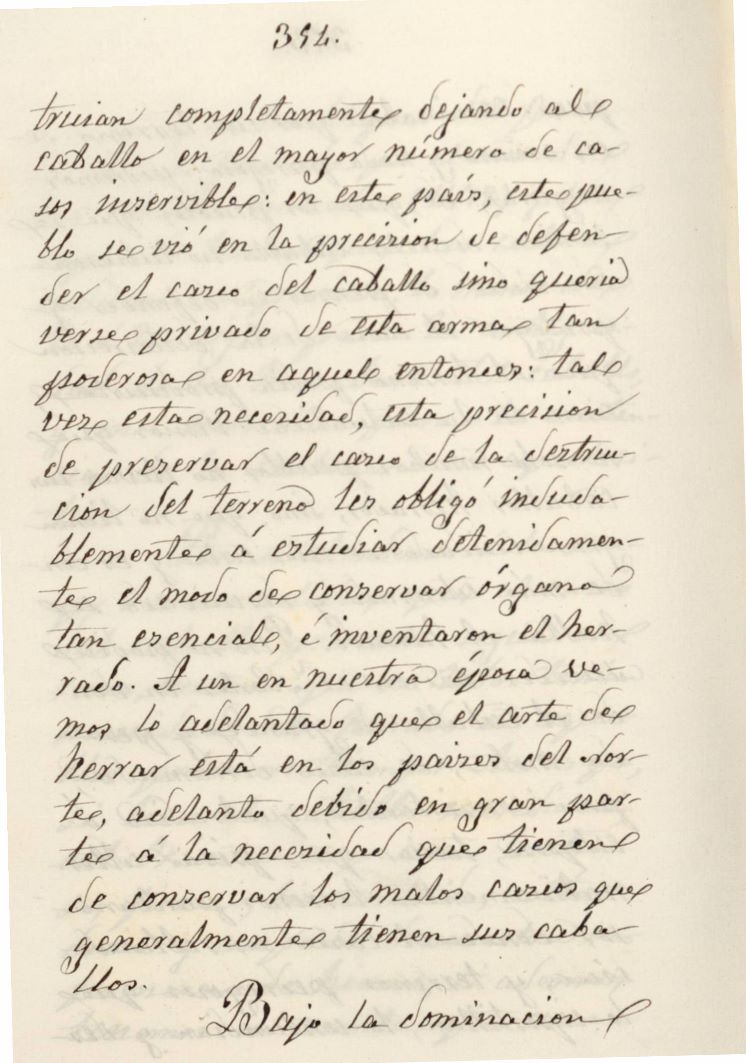 354.
truian completamente dejando al
caballo en el mayor número de ca-
sos inservible: en este país, este pue-
blo se vió en la precision de defen-
der el casco del caballo sino queria
verse privado de esta arma tan
poderosa en aquel entonces: tal
vez esta necesidad, esta precision
de preservar el casco de la destruc-
cion del terreno les obligó induda-
blemente á estudiar detenidamen-
te el modo de conservar órgano
tan esencial, é inventaron el her-
rado. A un en nuestra época ve-
mos lo adelantado que el arte de
herrar está en los paises del Nor-
te, adelanto debido en gran par-
te á la necesidad que tienen
de conservar los malos cascos que
generalmente tienen sus caba-
llos.
Bajo la dominacion